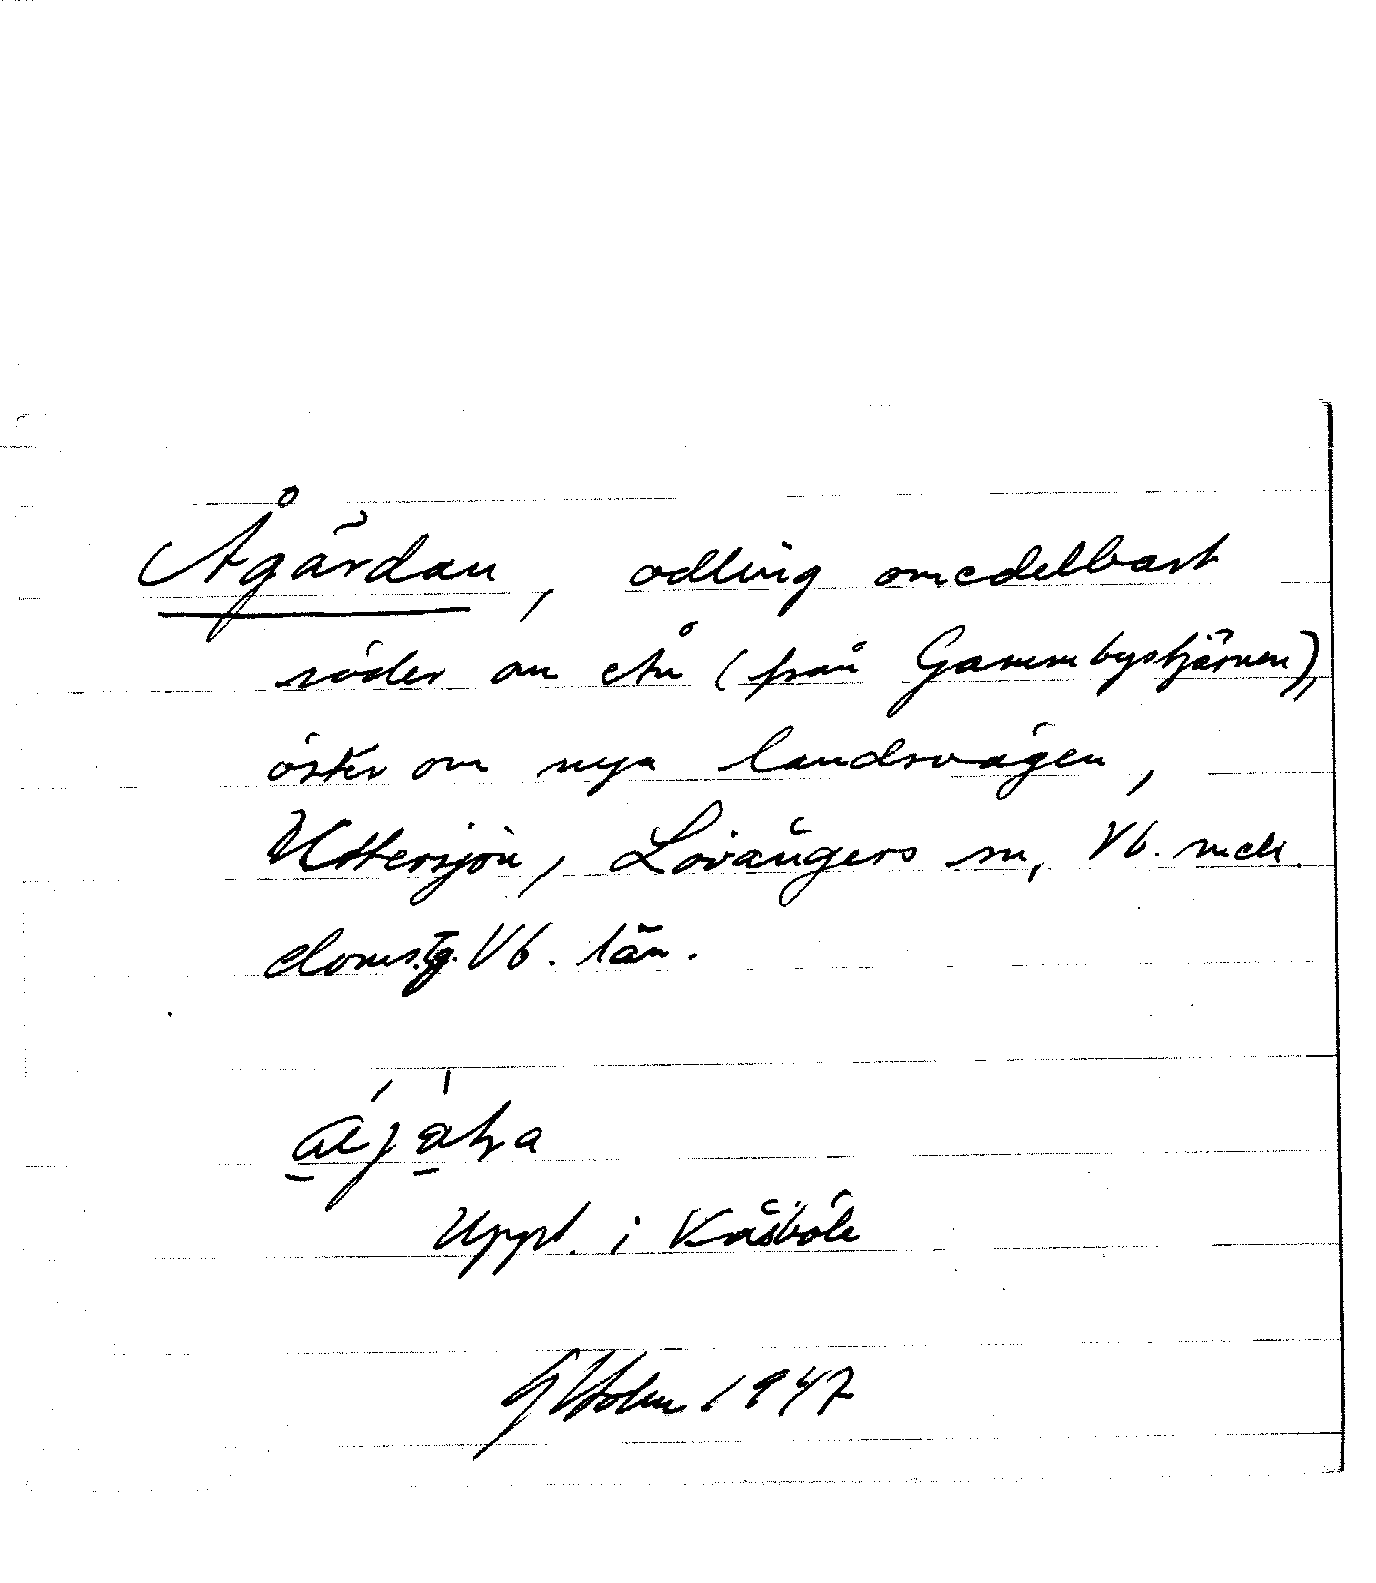 Ågärdan, odling omedelbart
söder om ån (från Gammbystjärnen),
öster om nya landsvägen,
Uttersjön, Lövångers sn, Vb. mell.
doms.tg. Vb. län.
Uppt. i Kåsböle
G Holm 1947